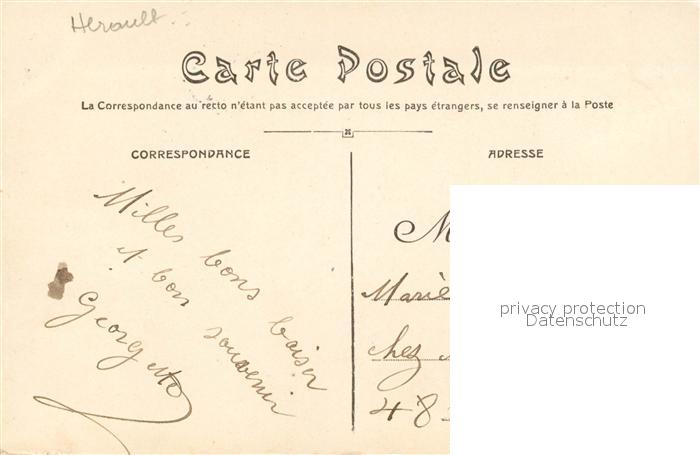 Herault
Carte Postale
La Correspondance au recto n'étant pas acceptée par tous les pays étrangers, se renseigner à la Poste
CORRESPONDANCE
ADRESSE
Milles bons baiser
et bon souvenir
Georgette
M
Marie
chez
48
privacy protection
Datenschutz